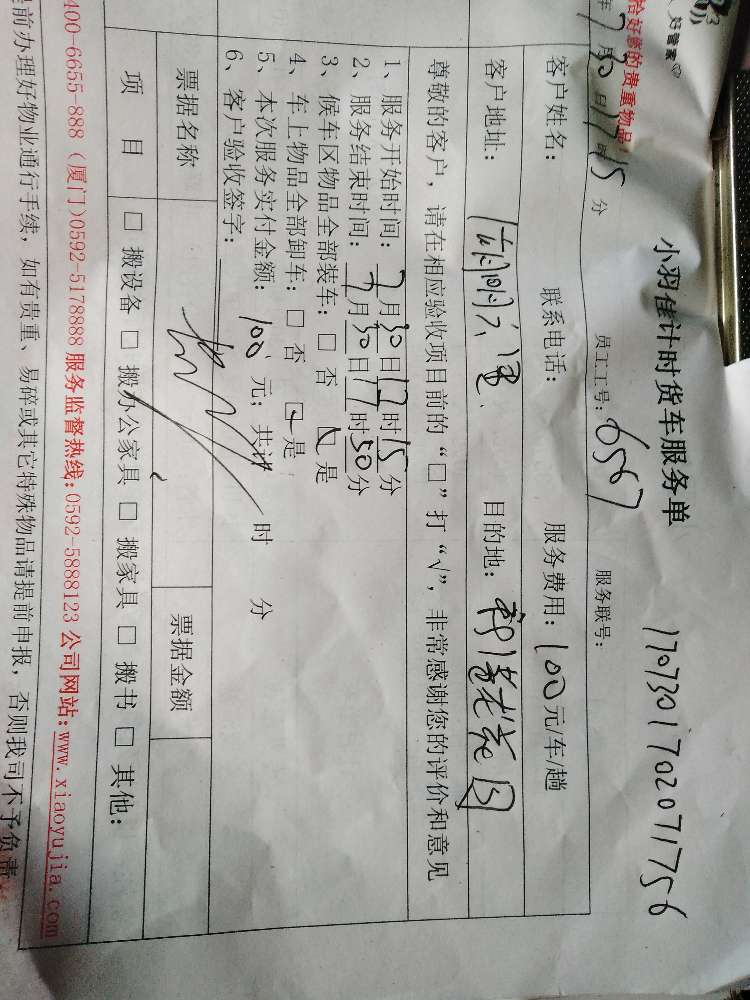 好管家
恰好您的贵重物品
小羽佳计时货车服务单
1707301702071756
年7月30日17时15分
员工工号：6567
服务联号：
客户姓名：
联系电话：
服务费用：100元/车/趟
客户地址：
目的地：
尊敬的客户，请在相应验收项目前的“□”打“√”，非常感谢您的评价和意见
1、服务开始时间：7月30日17时15分
2、服务结束时间：7月30日17时50分
3、候车区物品全部装车：□ 否 ☑ 是
4、车上物品全部卸车：□ 否 ☑ 是
5、本次服务实付金额：100元；共计 时 分
6、客户验收签字：
票据名称
票据金额
项 目
□ 搬设备 □ 搬办公家具 □ 搬家具 □ 搬书 □ 其他：
400-6655-888（厦门)0592-5178888 服务监督热线：0592-5888123 公司网站：www.xiaoyujia.com
提前办理好物业通行手续，如有贵重、易碎或其它特殊物品请提前申报，否则我司不予负责